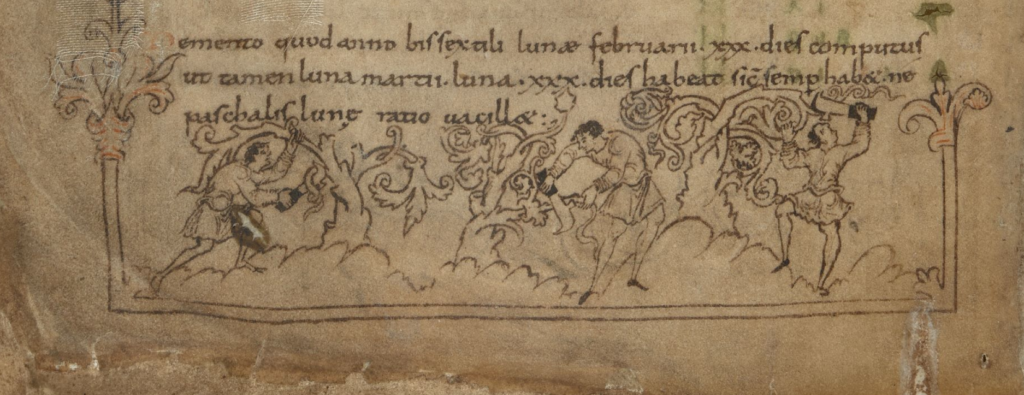 emento quod anno bissextili lunæ februarii · xxx · dies computus
ut tamen luna martii · luna · xxx · dies habeat sic̄ semp hab& · ne
paschalis lunę ratio vacill& :·